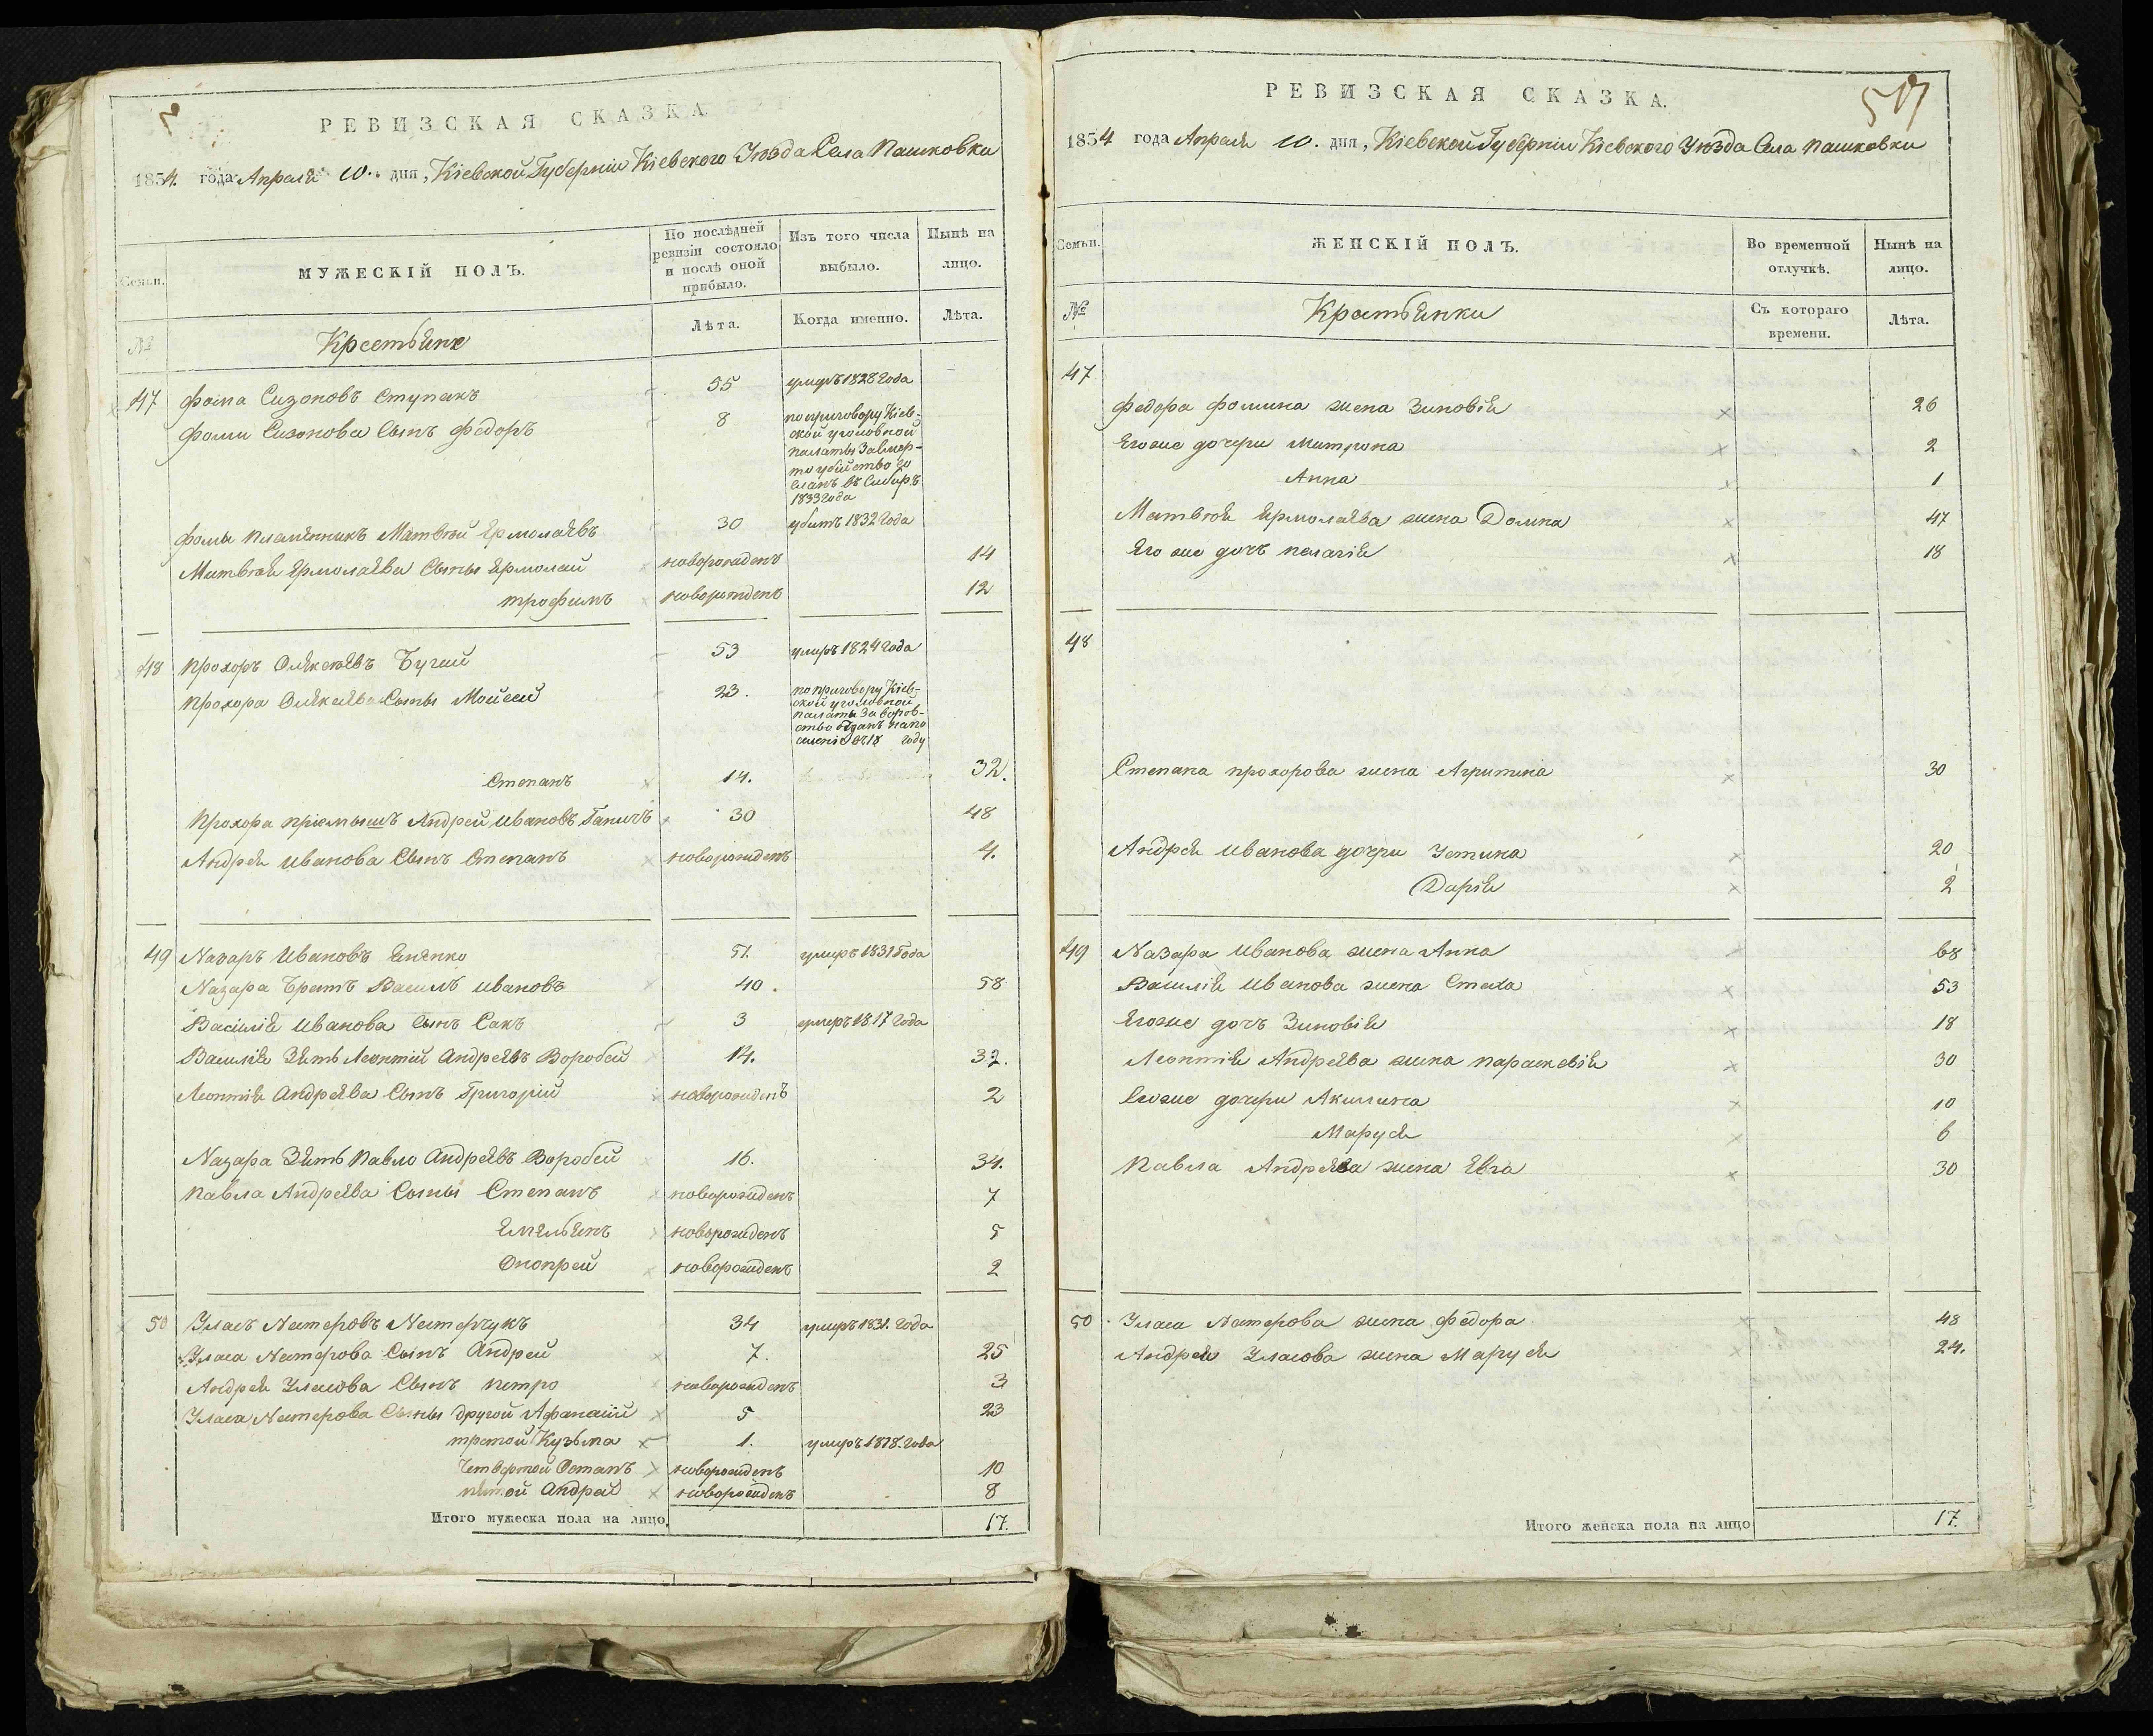 РЕВИЗСКАЯ СКАЗКА
1834. года Апреля 10. дня, Кіевской Губерніи Кіевского Уѣзда Села Пашковки
Семьи.
МУЖЕСКІЙ ПОЛЪ.
По послѣдней ревизіи состояло и послѣ оной прибыло.
Изъ того числа выбыло.
Нынѣ на лицо.
№
Крестьяне
Лѣта.
Когда именно.
Лѣта.
47 Фома Сизоновъ Ступакъ 55 умеръ 1828 года
Фомы Сизонова Сынъ Федоръ 8 по приговору Кіев-
ской уголовной
палаты За смер-
то убійство со
сланъ въ Сибирь
1833 года
Фомы племянникъ Матвѣй Ярмолаевъ 30 убитъ 1832 года
Матвѣя Ярмолаева Сыны Ярмолай новорожденъ 14
трофимъ новорожденъ 12
48 Прохоръ Олексѣевъ Бугай 53 умеръ 1824 года
Прохора Олексѣева Сыны Мойсей 23. по приговору Кіев-
ской уголовной
палаты За воров-
ство отданъ на по
селеніе въ 18 году
Степанъ 14. 32.
Прохора пріемышъ Андрей Ивановъ 30 48
Андрея Иванова Сынъ Степанъ новорожденъ 4.
49 Назаръ Ивановъ 51. умеръ 1831 года
Назара братъ Василь Ивановъ 40. 58
Василія Иванова Сынъ Сакъ 3 умеръ 1817 года
Василія Зять Леонтій Андреевъ Воробей 14. 32.
Леонтія Андреева Сынъ Григорій новорожденъ 2
Назара Зять Павло Андреевъ Воробей 16. 34.
Павла Андреева Сыны Степанъ новорожденъ 7
Емельянъ новорожденъ 5
Онопрей новорожденъ 2
50 Уласъ Нестеровъ Нестерчукъ 34 умеръ 1831. года
Уласа Нестерова Сынъ Андрей 7. 25
Андрея Уласова Сынъ Петро новорожденъ 3
Уласа Нестерова Сыны другой Афанасій 5 23
третой Кузьма 1. умеръ 1818. года
Четвертой Остапъ новорожденъ 10
пятой Андрей новорожденъ 8
Итого мужеска пола на лицо. 17.
517
РЕВИЗСКАЯ СКАЗКА.
1834 года Апреля 10. дня, Кіевской Губерніи Кіевского Уѣзда Села Пашковки
Семьи.
ЖЕНСКІЙ ПОЛЪ.
Во временной отлучкѣ.
Нынѣ на лицо.
№
Крестьянки
Съ котораго времени.
Лѣта.
47
Федора Фомина жена Зиновія 26
Его же дочери Матрона 2
Анна 1
Матвѣя Ярмолаева жена Домна 47
Его же дочь Пелагія 18
48
Степана Прохорова жена Агрипина 30
Андрея Иванова дочери Устина 20
Дарія 2
49 Назара Иванова жена Анна 68
Василія Иванова жена Стаха 53
Его же дочь Зиновія 18
Леонтія Андреева жена Параскевія 30
Его же дочери Акилина 10
Маруся 6
Павла Андреева жена Евга 30
50 Уласа Нестерова жена Федора 48
Андрея Уласова жена Маруся 24.
Итого женска пола на лицо 17.